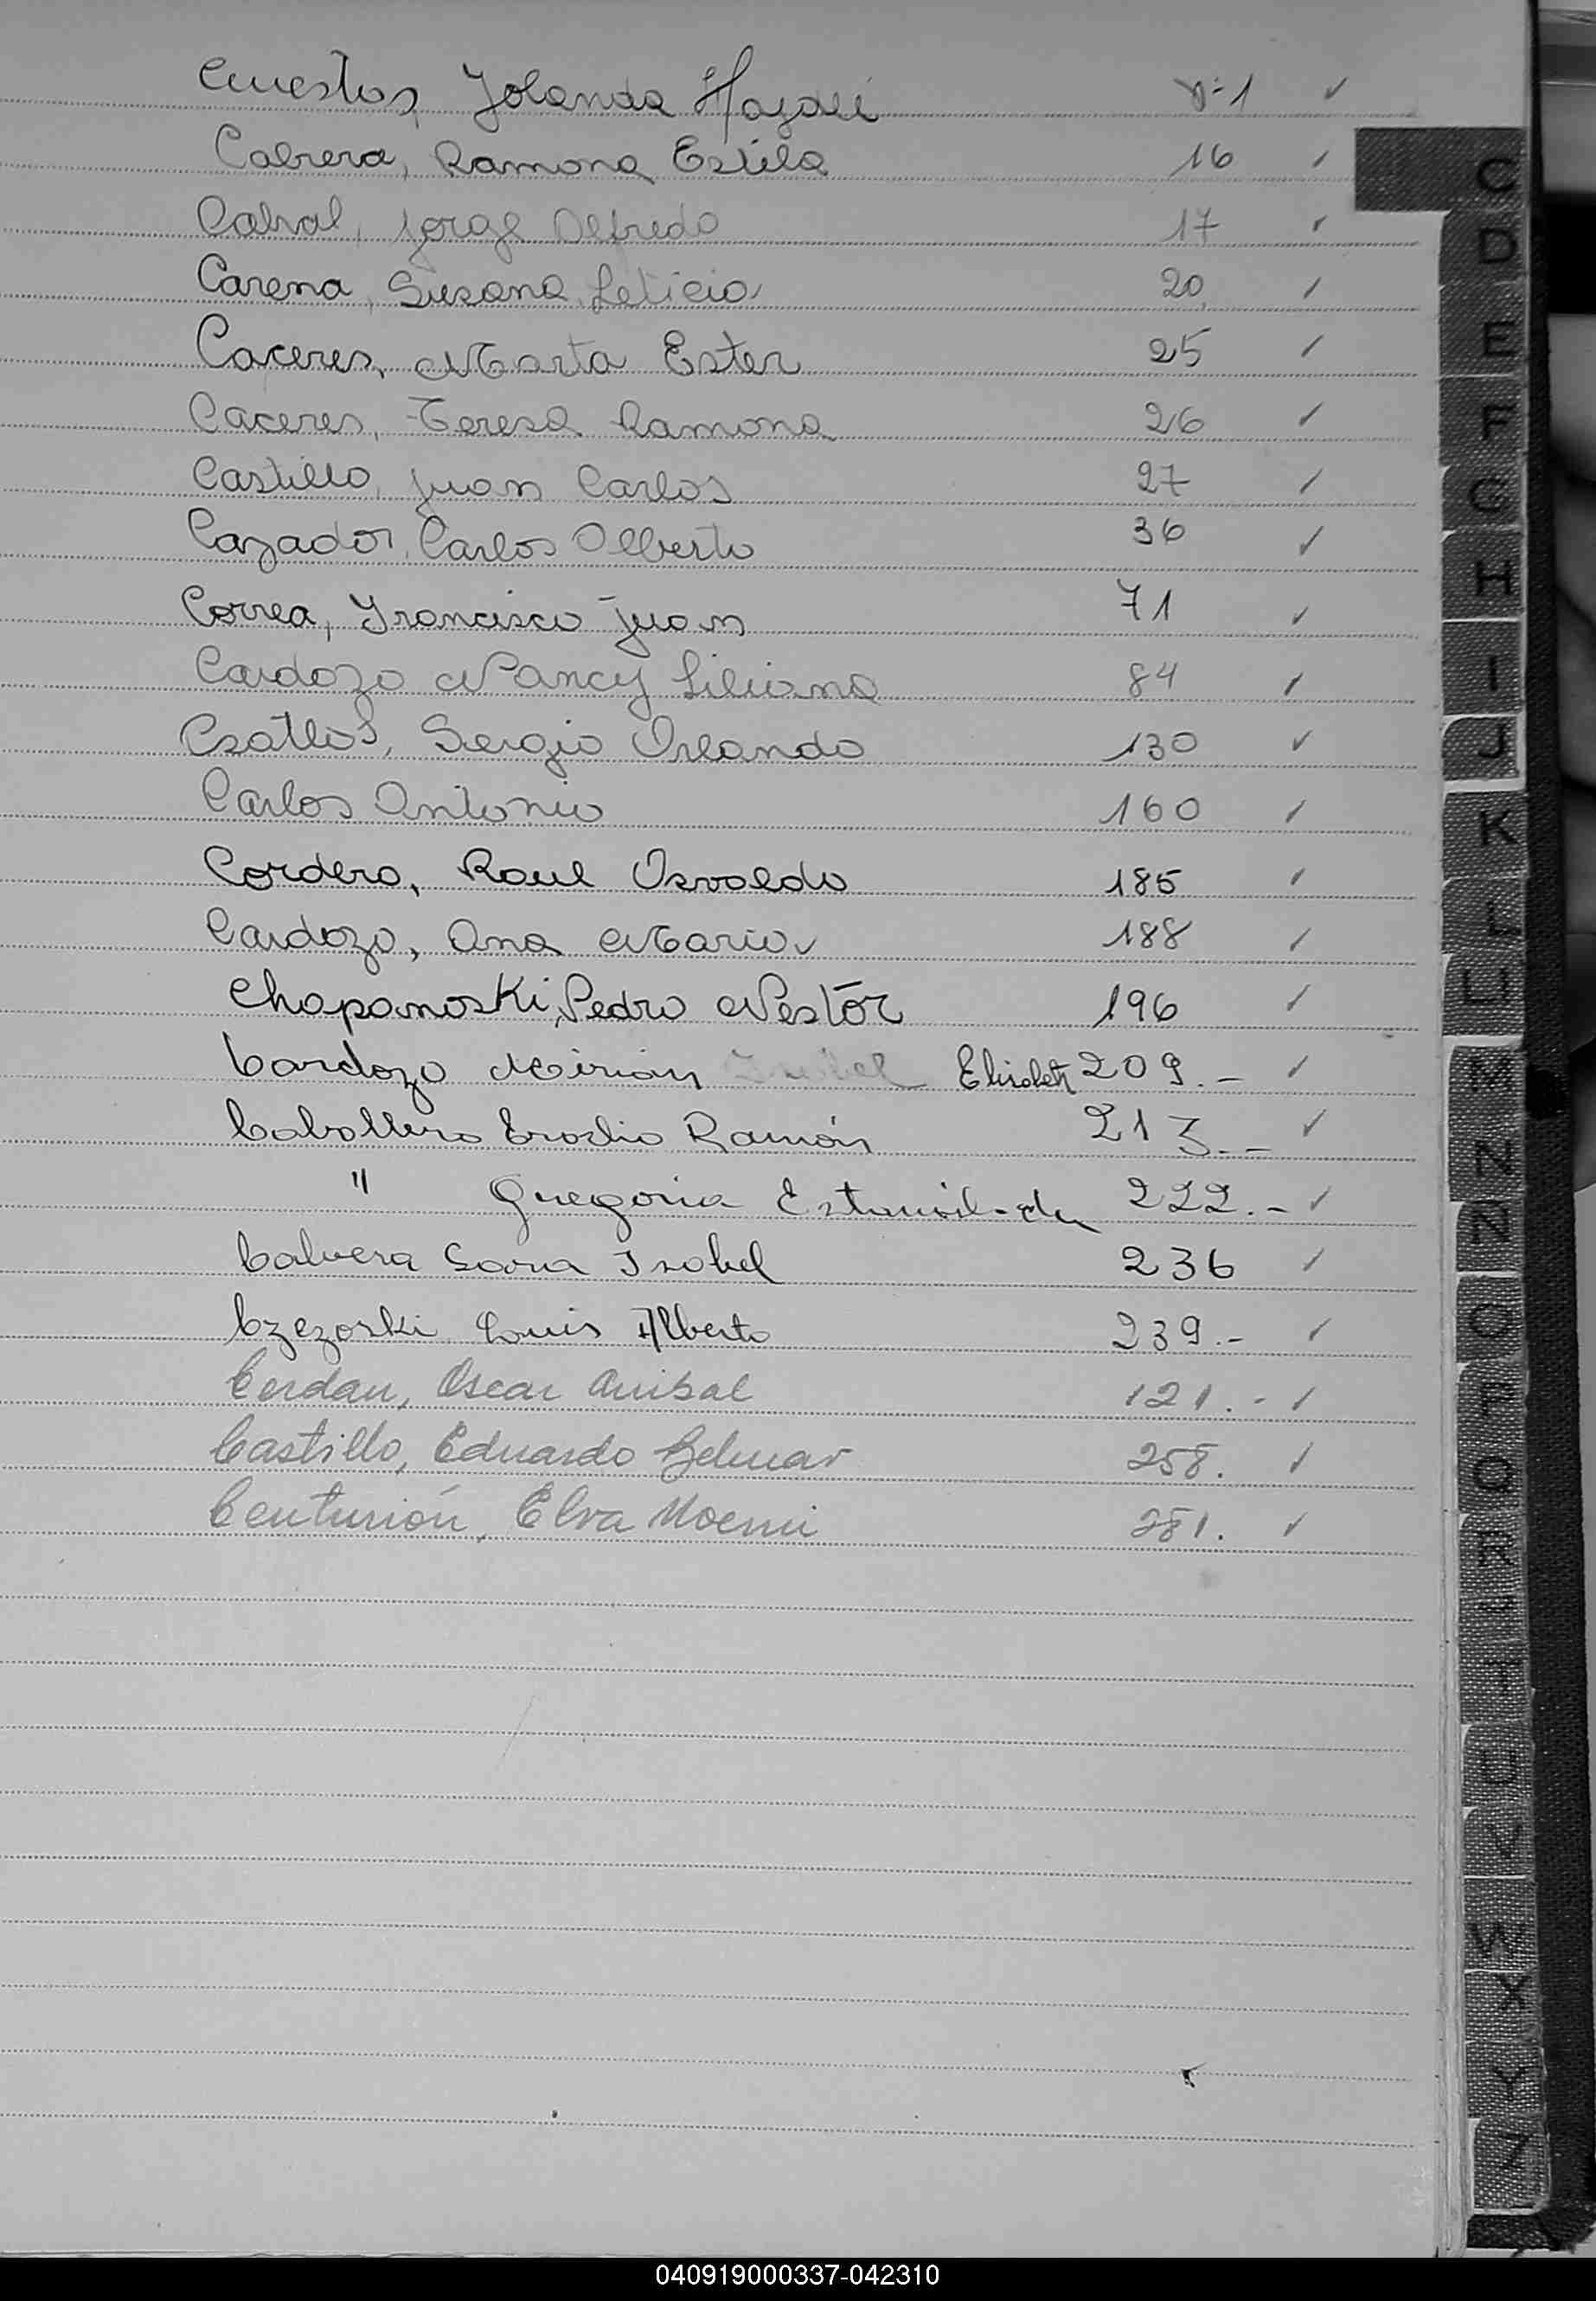 Cuestas, Jolanda Haydeé Nº 1 ✓
Cabrera, Ramona Estela 16 ✓
Cabral, Jorge Alfredo 17 ✓
Carena, Susana Leticia 20 ✓
Caceres, Marta Ester 25 ✓
Caceres, Teresa Ramona 26 ✓
Castillo, Juan Carlos 27 ✓
Cazador, Carlos Alberto 36 ✓
Correa, Francisco Juan 71 ✓
Cardozo Nancy Liliana 84 ✓
Csatlos, Sergio Orlando 130 ✓
Carlos Antonio 160 ✓
Cordero, Raul Osvaldo 185 ✓
Cardozo, Ana Maria 188 ✓
Chapanoski, Pedro Nestór 196 ✓
Cardozo Mirian Elizabeth 209.- ✓
Caballero Ramón 213.- ✓
" Gregoria 222.- ✓
Calvera Sara Isabel 236 ✓
Czezoski Luis Alberto 239.- ✓
Cerdan, Oscar Anibal 121.- ✓
Castillo, Eduardo Gelmar 258. ✓
Centurión, Elva Noemi 281. ✓
C
D
E
F
G
H
I
J
K
L
LL
M
N
Ñ
O
P
Q
R
S
T
U
V
W
X
Y
Z
040919000337-042310